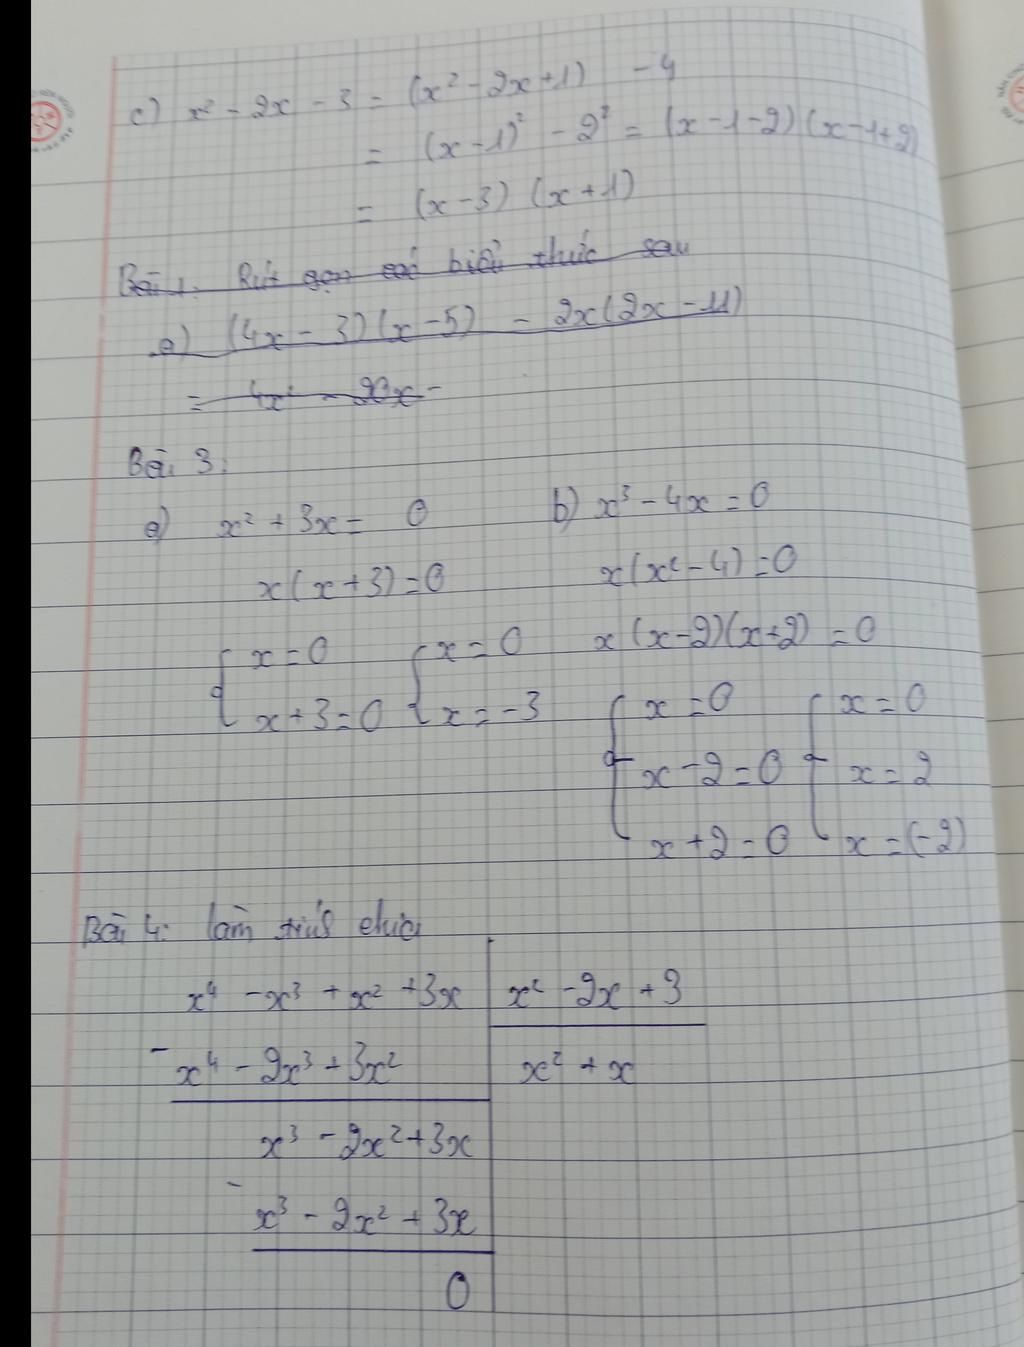 c) x² - 2x - 3 = (x² - 2x + 1) - 4
= (x - 1)² - 2² = (x - 1 - 2)(x - 1 + 2)
= (x - 3) (x + 1)
Bài 1. Rút gọn các biểu thức sau
a) (4x - 3)(x - 5) - 2x(2x - 11)
= 4x² - 20x -
Bài 3:
a) x² + 3x = 0 b) x³ - 4x = 0
x(x + 3) = 0 x(x² - 4) = 0
x = 0 x = 0 x(x - 2)(x + 2) = 0
x + 3 = 0 x = -3 x = 0 x = 0
x - 2 = 0 x = 2
x + 2 = 0 x = (-2)
Bài 4: làm tính chia
x⁴ - x³ + x² + 3x x² - 2x + 3
- x⁴ - 2x³ + 3x² x² + x
x³ - 2x² + 3x
- x³ - 2x² + 3x
0